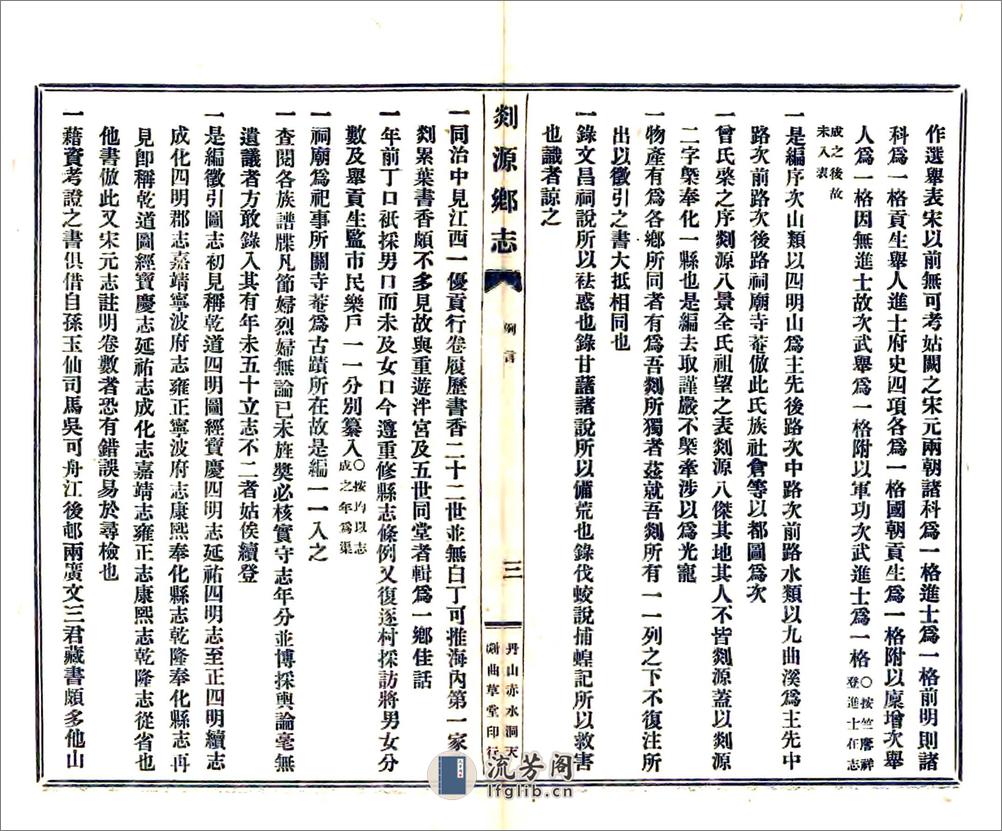 作選舉表宋以前無可考姑闕之宋元兩朝諸科爲一格進士爲一格前明則諸
科爲一格貢生舉人進士府史四項各爲一格國朝貢生爲一格附以廩增次舉
人爲一格因無進士故次武舉爲一格附以軍功次武進士爲一格○按竺麐祥登進士在志
成之後故未入表
一是編序次山類以四明山爲主先後路次中路次前路水類以九曲溪爲主先中
路次前路次後路祠廟寺菴倣此氏族社倉等以都圖爲次
一曾氏棨之序剡源八景全氏祖望之表剡源八傑其地其人不皆剡源蓋以剡源
二字槩奉化一縣也是編去取謹嚴不槩牽涉以爲光寵
一物產有爲各鄉所同者有爲吾剡所獨者茲就吾剡所有一一列之下不復注所
出以徵引之書大抵相同也
一錄文昌祠說所以祛惑也錄甘藷諸說所以備荒也錄伐蛟說捕蝗記所以救害
也識者諒之
剡源鄉志
例言
三
丹山赤水洞天
剡曲草堂印行
一同治中見江西一優貢行卷履歷書香二十二世並無白丁可推海內第一家
剡累葉書香頗不多見故與重遊泮宮及五世同堂者輯爲一鄉佳話
一年前丁口祇採男口而未及女口今遵重修縣志條例又復逐村採訪將男女分
數及舉貢生監市民樂戶一一分別纂入○按均以志成之年爲㫁
一祠廟爲祀事所關寺菴爲古蹟所在故是編一一入之
一查閱各族譜牒凡節婦烈婦無論已未旌獎必核實守志年分並博採輿論毫無
遺議者方敢錄入其有年未五十立志不二者姑俟續登
一是編徵引圖志初見稱乾道四明圖經寶慶四明志延祐四明志至正四明續志
成化四明郡志嘉靖寧波府志雍正寧波府志康熙奉化縣志乾隆奉化縣志再
見卽稱乾道圖經寶慶志延祐志成化志嘉靖志雍正志康熙志乾隆志從省也
他書倣此又宋元志註明卷數者恐有錯誤易於尋檢也
一藉資考證之書俱借自孫玉仙司馬吳可舟江後邨兩廣文三君藏書頗多他山
流芳阁
lfglib.cn